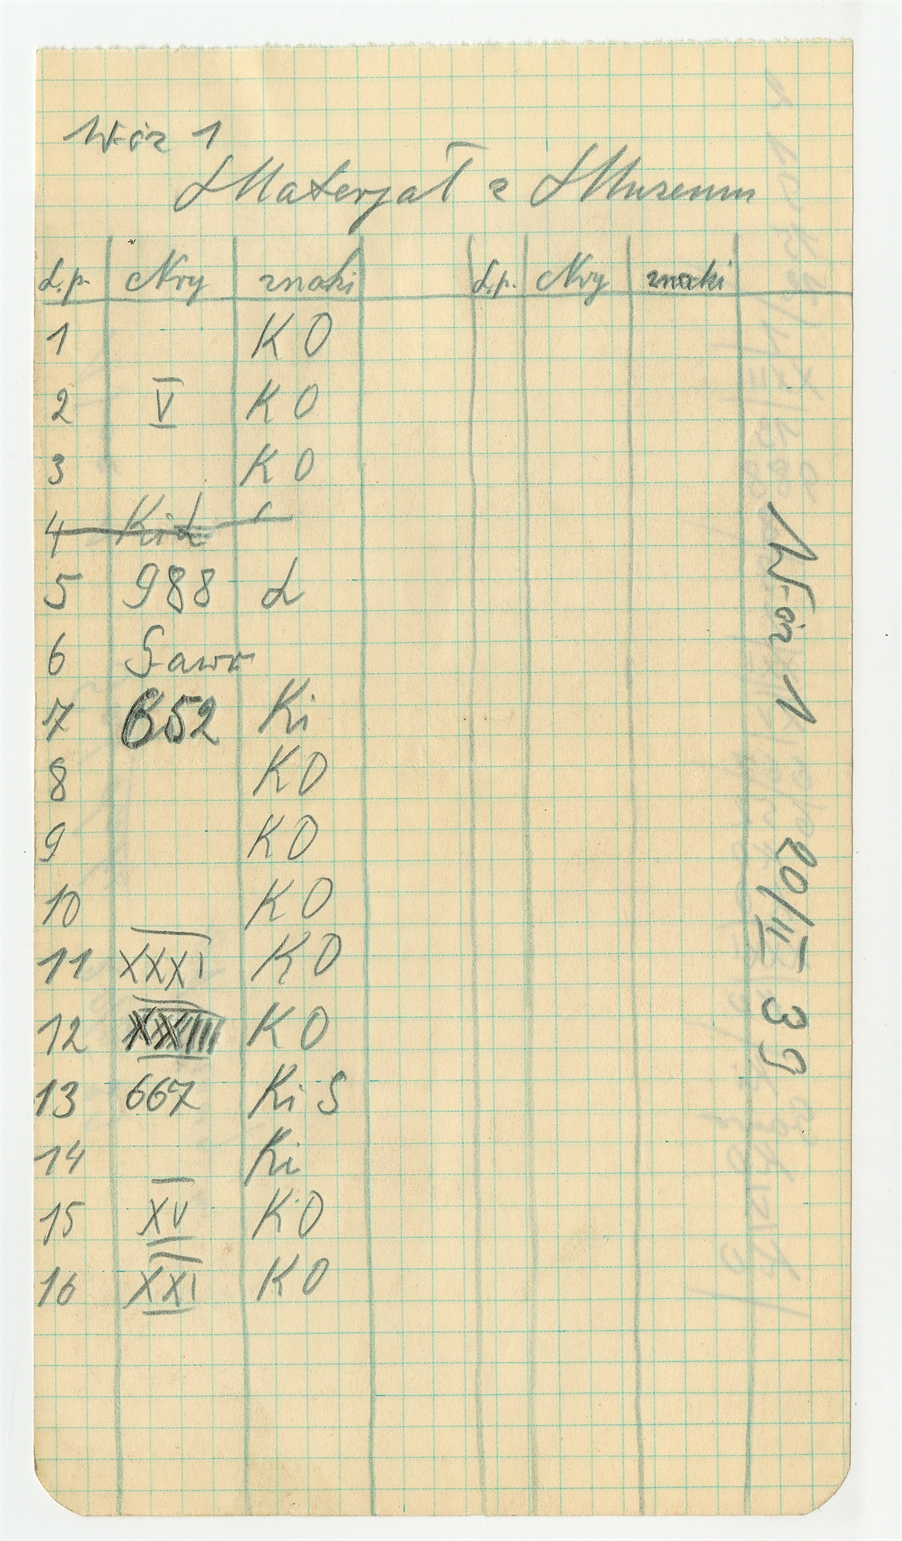 Wóz 1
Materjał z Muzeum
L.p. Nry znaki L.p. Nry znaki
1 KO
2 V KO
3 KO
4
5 988 L
6 Sawr
7 652 Ki
8 KO
9 KO
10 KO
11 XXXI KO
12 XXIII KO
13 667 Ki S
14 Ki
15 XV KO
16 XXI KO
Wóz 1 20/II 39